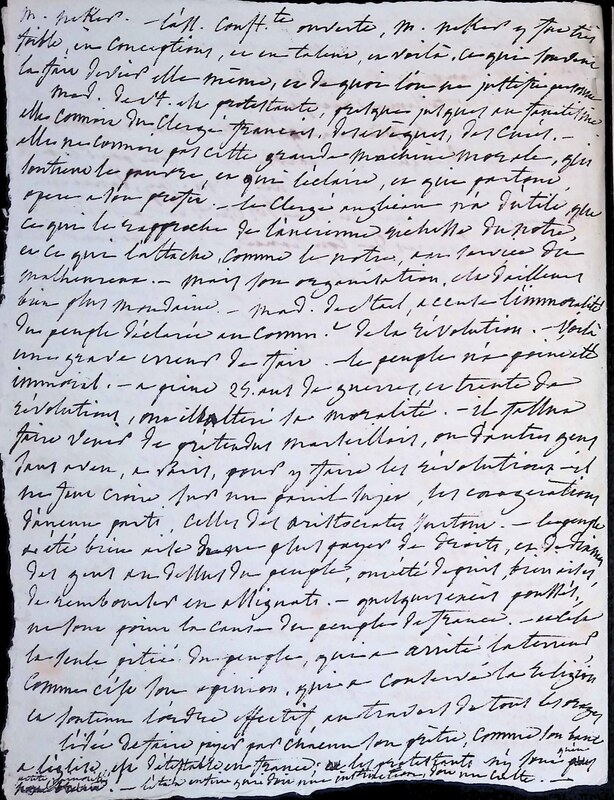 m. neker. - l'ass. constte ouverte, m. neker y fut très
faible, en conceptions, et en talens, et voilà, ce que son livre
la fait deviner elle même, et de quoi l'on ne justifie personne
mad. de st. est protestante, presque jusques au fanatisme.
elle connoit du clergé françois, des évêques, des curés. -
elle ne connoit pas cette grande machine morale, qui
soutient le pauvre, et qui l'éclaire, et qui partout,
opère à son profit. - le clergé anglican n'a d'utile que
ce qui le rapproche de l'ancienne richesse du notre,
et ce qui l'attache, comme le notre, au service du
malheureux. - mais son organisation, est d'ailleurs
bien plus mondaine. - mad. de stael, accuse l'immoralité
du peuple déclarée au commt de la révolution. - Voilà
une grave erreur de fait. - le peuple n'a point été
immoral. - a peine 25. ans de guerres, et trente de
révolutions, ont-ils altéré sa moralité. - il fallut
faire venir de prétendus marseillois, ou d'autres gens
sans aveu, à Paris, pour y faire les révolutions - il
ne faut croire sur un pareil sujet, les exagérations
d'aucune part, celles des aristocrates surtout. - le peuple
a été bien aise de ne plus payer de droits, et de dixmes
des gens au dessus du peuple, ont été depuis, bien aises,
de rembourser en assignats. - quelques excès poussés,
ne sont point la cause du peuple de france. - c'est
la seule pitié du peuple, qui a arrêté la terreur
comme c'est son opinion, qui a conservé la religion
et soutenu l'ordre effectif au travers de tout les orages
l'idée de faire payer par chacun son prêtre comme son banc
a l'église, est détestable en france. les protestants n'y sont
- instruction, ou un culte. -